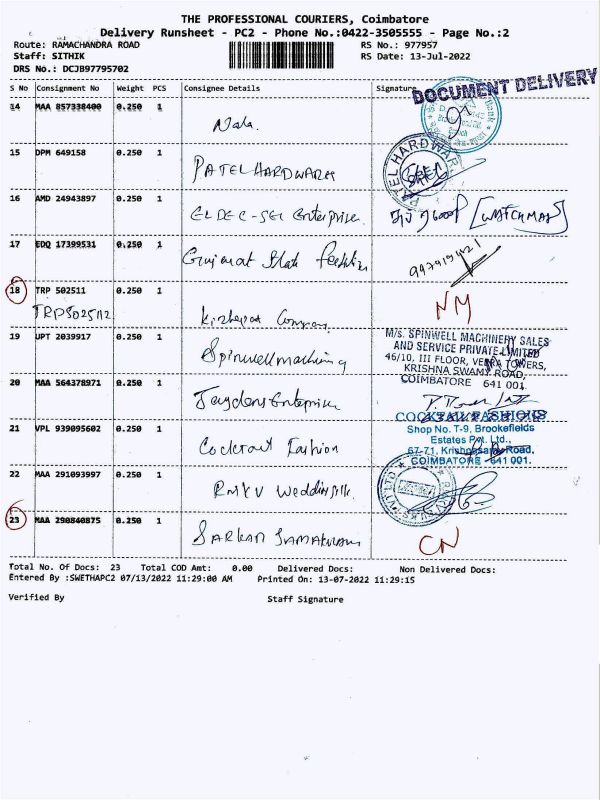 THE PROFESSIONAL COURIERS, Coimbatore
Delivery Runsheet - PC2 - Phone No.:0422-3505555 - Page No.:2
Route: RAMACHANDRA ROAD RS No.: 977957
Staff: SITHIK RS Date: 13-Jul-2022
DRS No.: DCJB97795702
S No Consignment No Weight PCS Consignee Details Signature
DOCUMENT DELIVERY
14 MAA 857338400 0.250 1
15 DPM 649158 0.250 1
PATEL HARDWARE
PATEL HARDWAR
16 AMD 24943897 0.250 1
ELDEC-SEI Enterprise
[WATCHMAN]
17 EDQ 17399531 0.250 1
Gujarat
18 TRP 502511 0.250 1
NM
TRP502511
Company
19 UPT 2039917 0.250 1
Spinwell machinery
M/s. SPINWELL MACHINERY SALES
AND SERVICE PRIVATE LIMITED
46/10, III FLOOR, VEERA TOWERS,
KRISHNA SWAMY ROAD,
COIMBATORE 641 001.
20 MAA 564378971 0.250 1
Jaydens Enterprise
21 VPL 939095602 0.250 1
Cocktail Fashion
COCKTAIL FASHIONS
Shop No. T-9, Brookefields
Estates Pvt. Ltd.,
67-71, Krishnasamy Road,
COIMBATORE - 641 001.
22 MAA 291093997 0.250 1
RMKV Wedding silk
23 MAA 290840875 0.250 1
CN
Total No. Of Docs: 23 Total COD Amt: 0.00 Delivered Docs: Non Delivered Docs:
Entered By :SWETHAPC2 07/13/2022 11:29:00 AM Printed On: 13-07-2022 11:29:15
Verified By Staff Signature